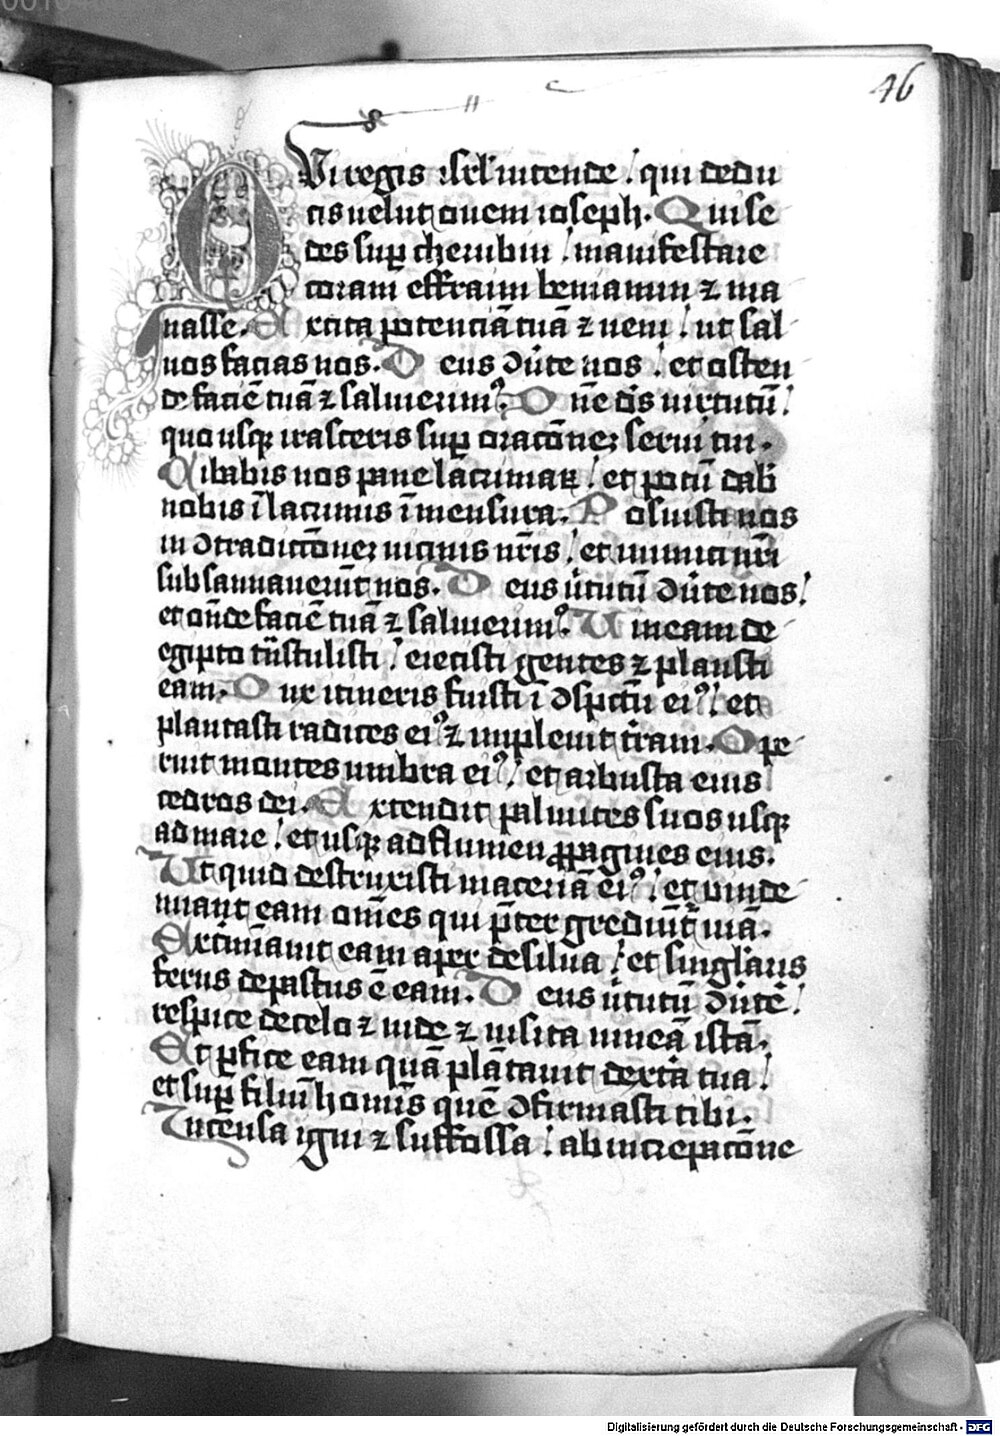 46
QVi regis isrl' intende / qui dedu
cis uelut ouem ioseph. Qui se
des sup cherubin / manifestare
coram effraim beniamin ⁊ ma
nasse. Excita potenciā tuā ⁊ ueni / ut sal
uos facias nos. Deus ↄūte nos / et osten
de faciē tuā ⁊ saluierimꝰ. Dn̄e ds̄ uirtutū /
quo usqꝫ irasceris suꝑ oracōneꝫ serui tui.
Cibabis nos pane lacrimaꝝ / et potū dab̄
nobis ī lacrimis ī mensura. Posuisti nos
in ↄtradictōneꝫ uicinis nr̄is / et inimici nr̄i
subsannauerūt nos. Deus ūtutū ↄūte nos /
et on̄de faciē tuā ⁊ saluierimꝰ. Uineam de
egipto tn̄stulisti / eiecisti gentes ⁊ plansti
eam. Dux itineris fuisti ī ↄspctū eiꝰ / et
plantasti radices eiꝰ ⁊ impleuit t̄ram. Ope
ruit montes umbra eiꝰ / et arbusta eius
cedros dei. Extendit palmites suos usqꝫ
ad mare / et usqꝫ ad flumen ꝓpagines eius.
Ut quid destruxisti maceriā eiꝰ / et uinde
miant eam om̄es qui p̄tergrediūt᷑ uiā.
Extīmauit eam aper de silua / et singl'aris
ferus depastus ē eam. Deus ūtutū ↄūtē /
respice de celo ⁊ uide ⁊ uisita uineā istā.
Et ꝑfice eam quā plātauit dext̄a tua /
et suꝑ filiū hominis quē ↄfirmasti tibi.
Incensa igni ⁊ suffossa / ab increpacōne
Digitalisierung gefördert durch die Deutsche Forschungsgemeinschaft - DFG